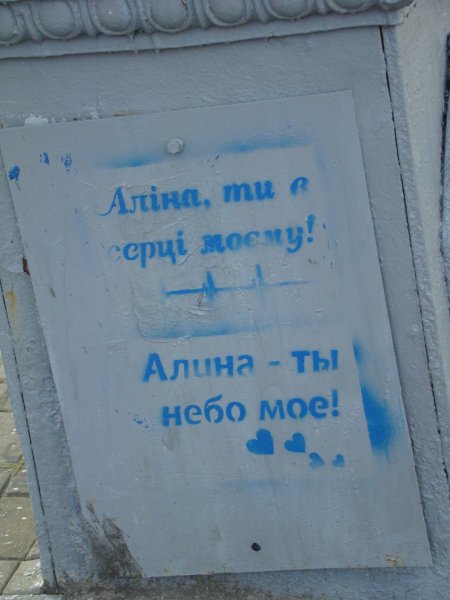 Аліна, ти в
серці моєму!
Алина - ты
небо мое!